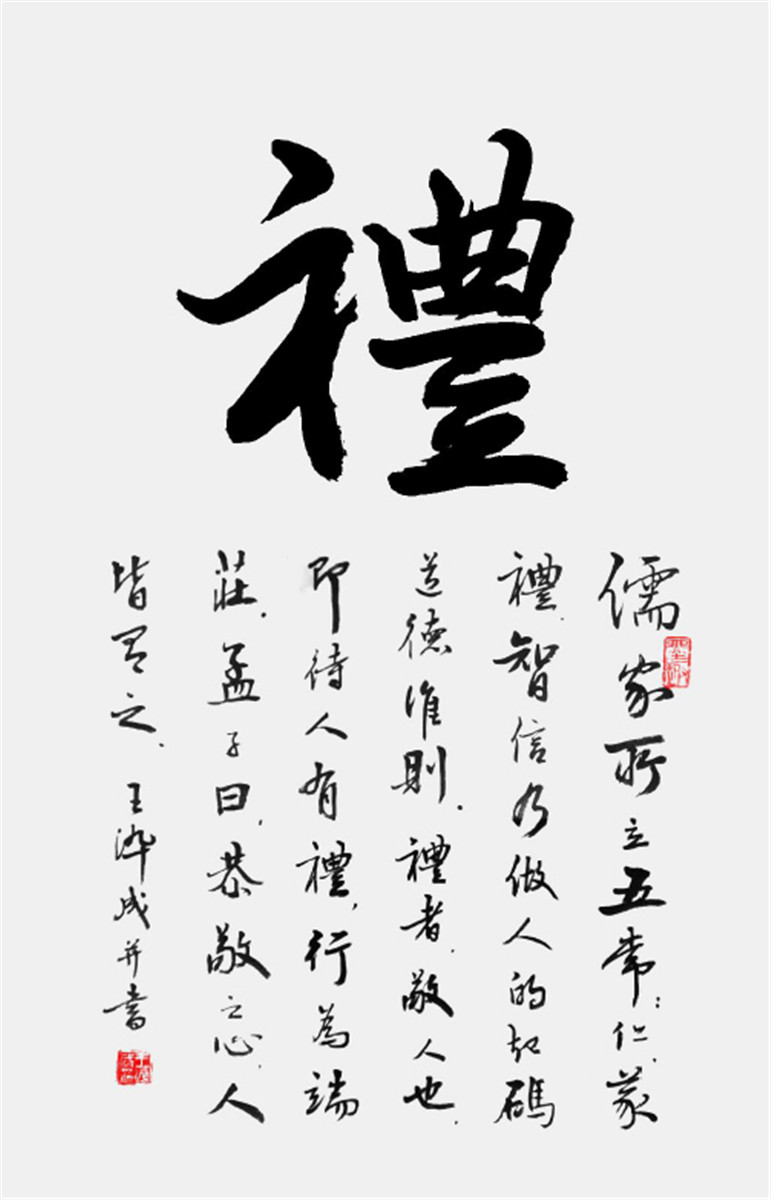 禮
儒家所立五常：仁、義、
禮、智、信乃做人的起碼
道德准則。禮者，敬人也，
即待人有禮，行為端
莊。孟子曰：恭敬之心，人
皆有之。王成并書